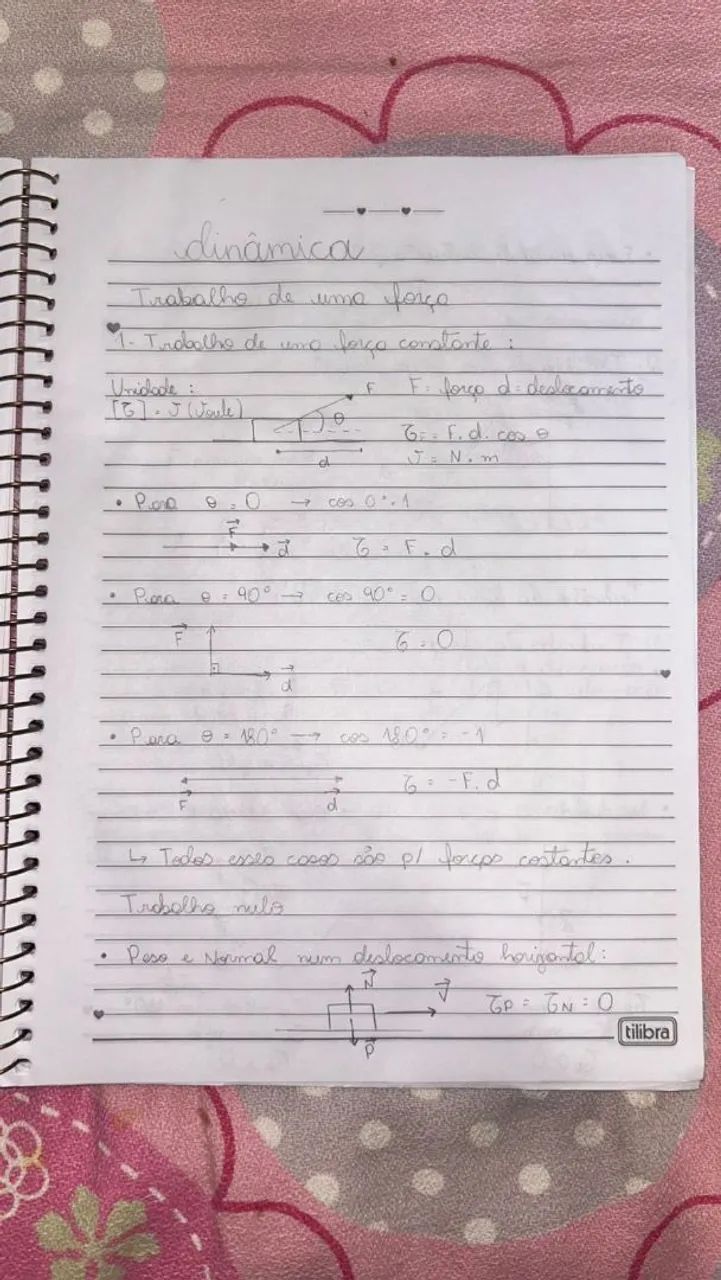 dinâmica
Trabalho de uma força
1- Trabalho de uma força constante :
Unidade : F F = força d = deslocamento
[τ] = J (Joule) θ
τF = F. d. cos θ
d J = N. m
• Para θ = 0 → cos 0° = 1
F→ d→ τ = F. d
• Para θ = 90° → cos 90° = 0
F→ τ = 0
d→
• Para θ = 180° → cos 180° = -1
τ = -F. d
F→ d→
↳ Todos esses casos são p/ forças costantes.
Trabalho nulo
• Peso e Normal num deslocamento horizontal:
N→ V→ τP = τN = 0
P→
tilibra